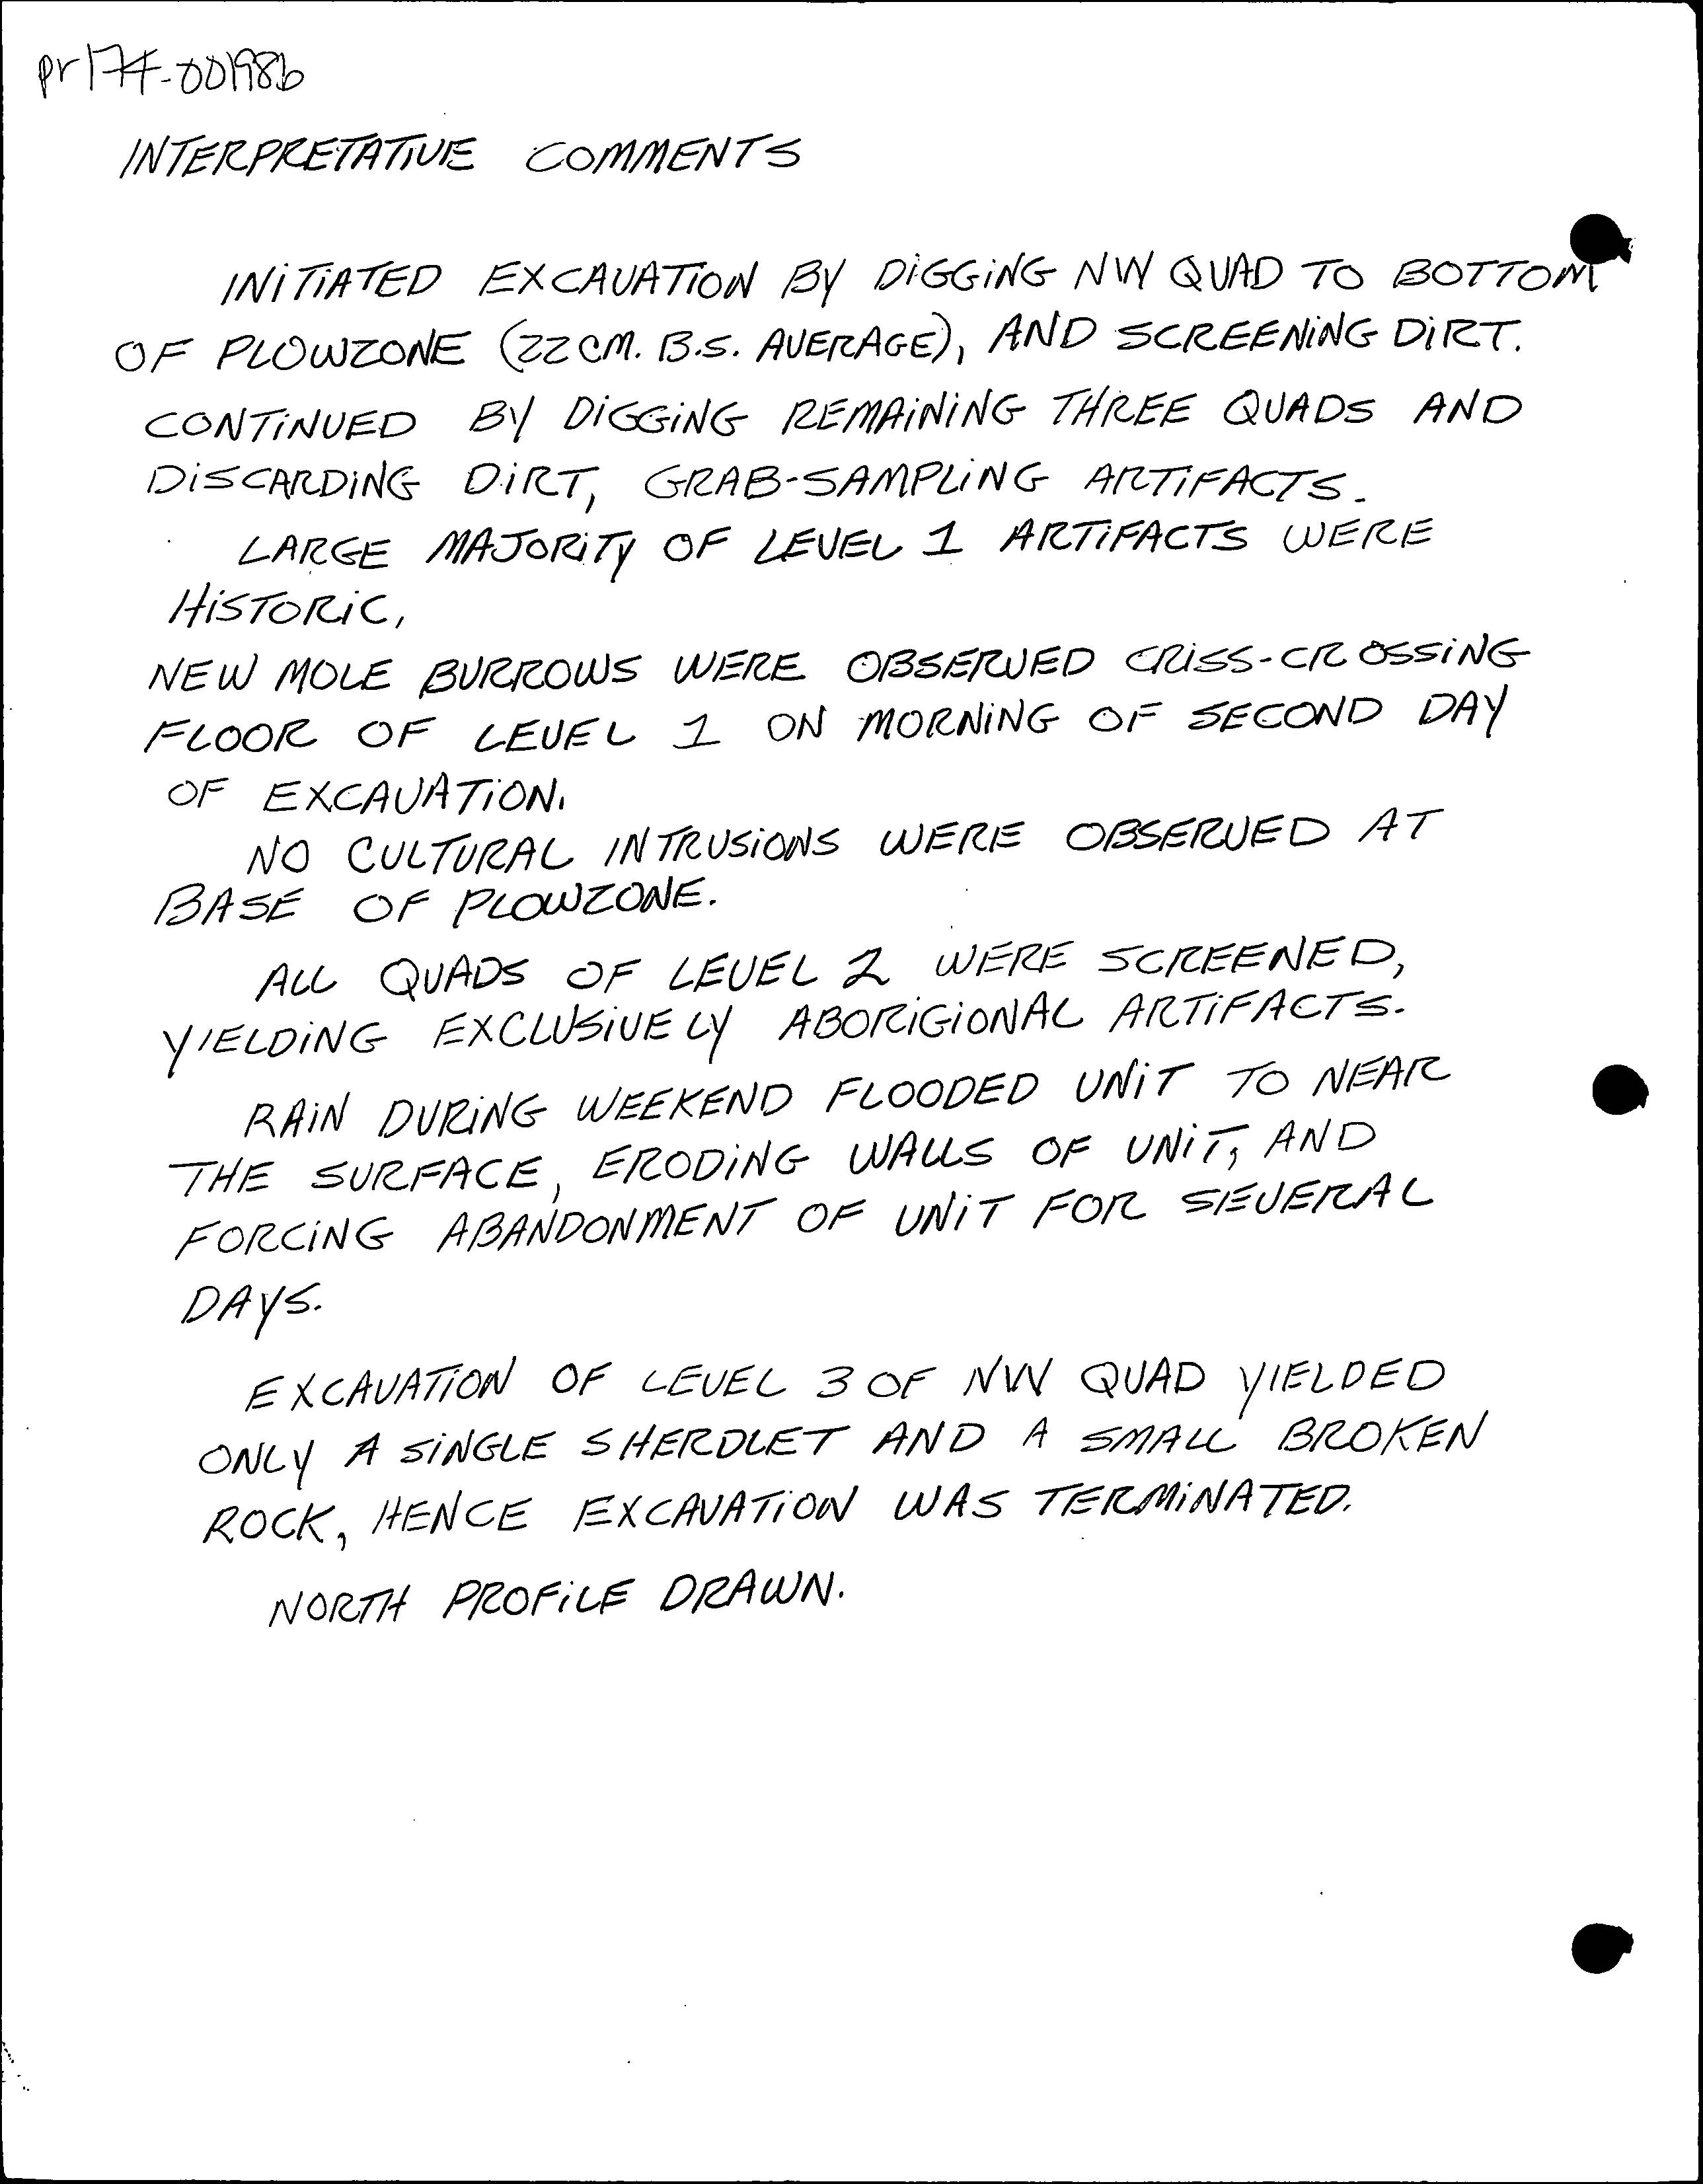 pr174-00198b
INTERPRETATIVE COMMENTS
INITIATED EXCAVATION BY DIGGING NW QUAD TO BOTTOM
OF PLOWZONE (22 CM. B.S. AVERAGE), AND SCREENING DIRT.
CONTINUED BY DIGGING REMAINING THREE QUADS AND
DISCARDING DIRT, GRAB-SAMPLING ARTIFACTS.
LARGE MAJORITY OF LEVEL 1 ARTIFACTS WERE
HISTORIC,
NEW MOLE BURROWS WERE OBSERVED CRISS-CROSSING
FLOOR OF LEVEL 1 ON MORNING OF SECOND DAY
OF EXCAVATION.
NO CULTURAL INTRUSIONS WERE OBSERVED AT
BASE OF PLOWZONE.
ALL QUADS OF LEVEL 2 WERE SCREENED,
YIELDING EXCLUSIVELY ABORIGIONAL ARTIFACTS.
RAIN DURING WEEKEND FLOODED UNIT TO NEAR
THE SURFACE, ERODING WALLS OF UNIT, AND
FORCING ABANDONMENT OF UNIT FOR SEVERAL
DAYS.
EXCAVATION OF LEVEL 3 OF NW QUAD YIELDED
ONLY A SINGLE SHERDLET AND A SMALL BROKEN
ROCK, HENCE EXCAVATION WAS TERMINATED.
NORTH PROFILE DRAWN.